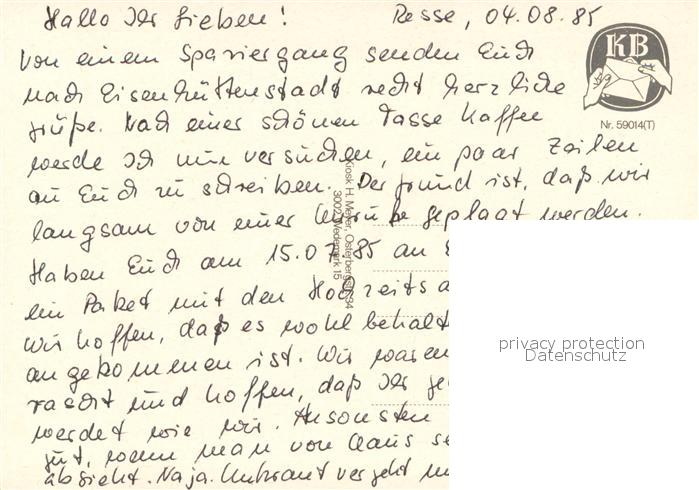 Hallo Ihr Lieben! Resse, 04.08.85
KB
Von einem Spaziergang senden Euch
nach Eisenhüttenstadt recht herzliche
Grüße. Nach einer schönen Tasse Kaffee
Nr. 59014(T)
werde ich nun versuchen, ein paar Zeilen
an Euch zu schreiben. Der Grund ist, daß wir
langsam von einer Unruhe geplagt werden.
Kiosk H. Meyer, Osterbergstr. 94
3002 Wedemark 15
Haben Euch am 15.07.85 an
ein Paket mit den Hochzeits
Wir hoffen, daß es wohl behalt
privacy protection
Datenschutz
angekommen ist. Wir waren
rascht und hoffen, daß Ihr
werdet wie wir. Ansonsten
gut, wenn man von Claus
absieht. Na ja. Unkraut vergeht